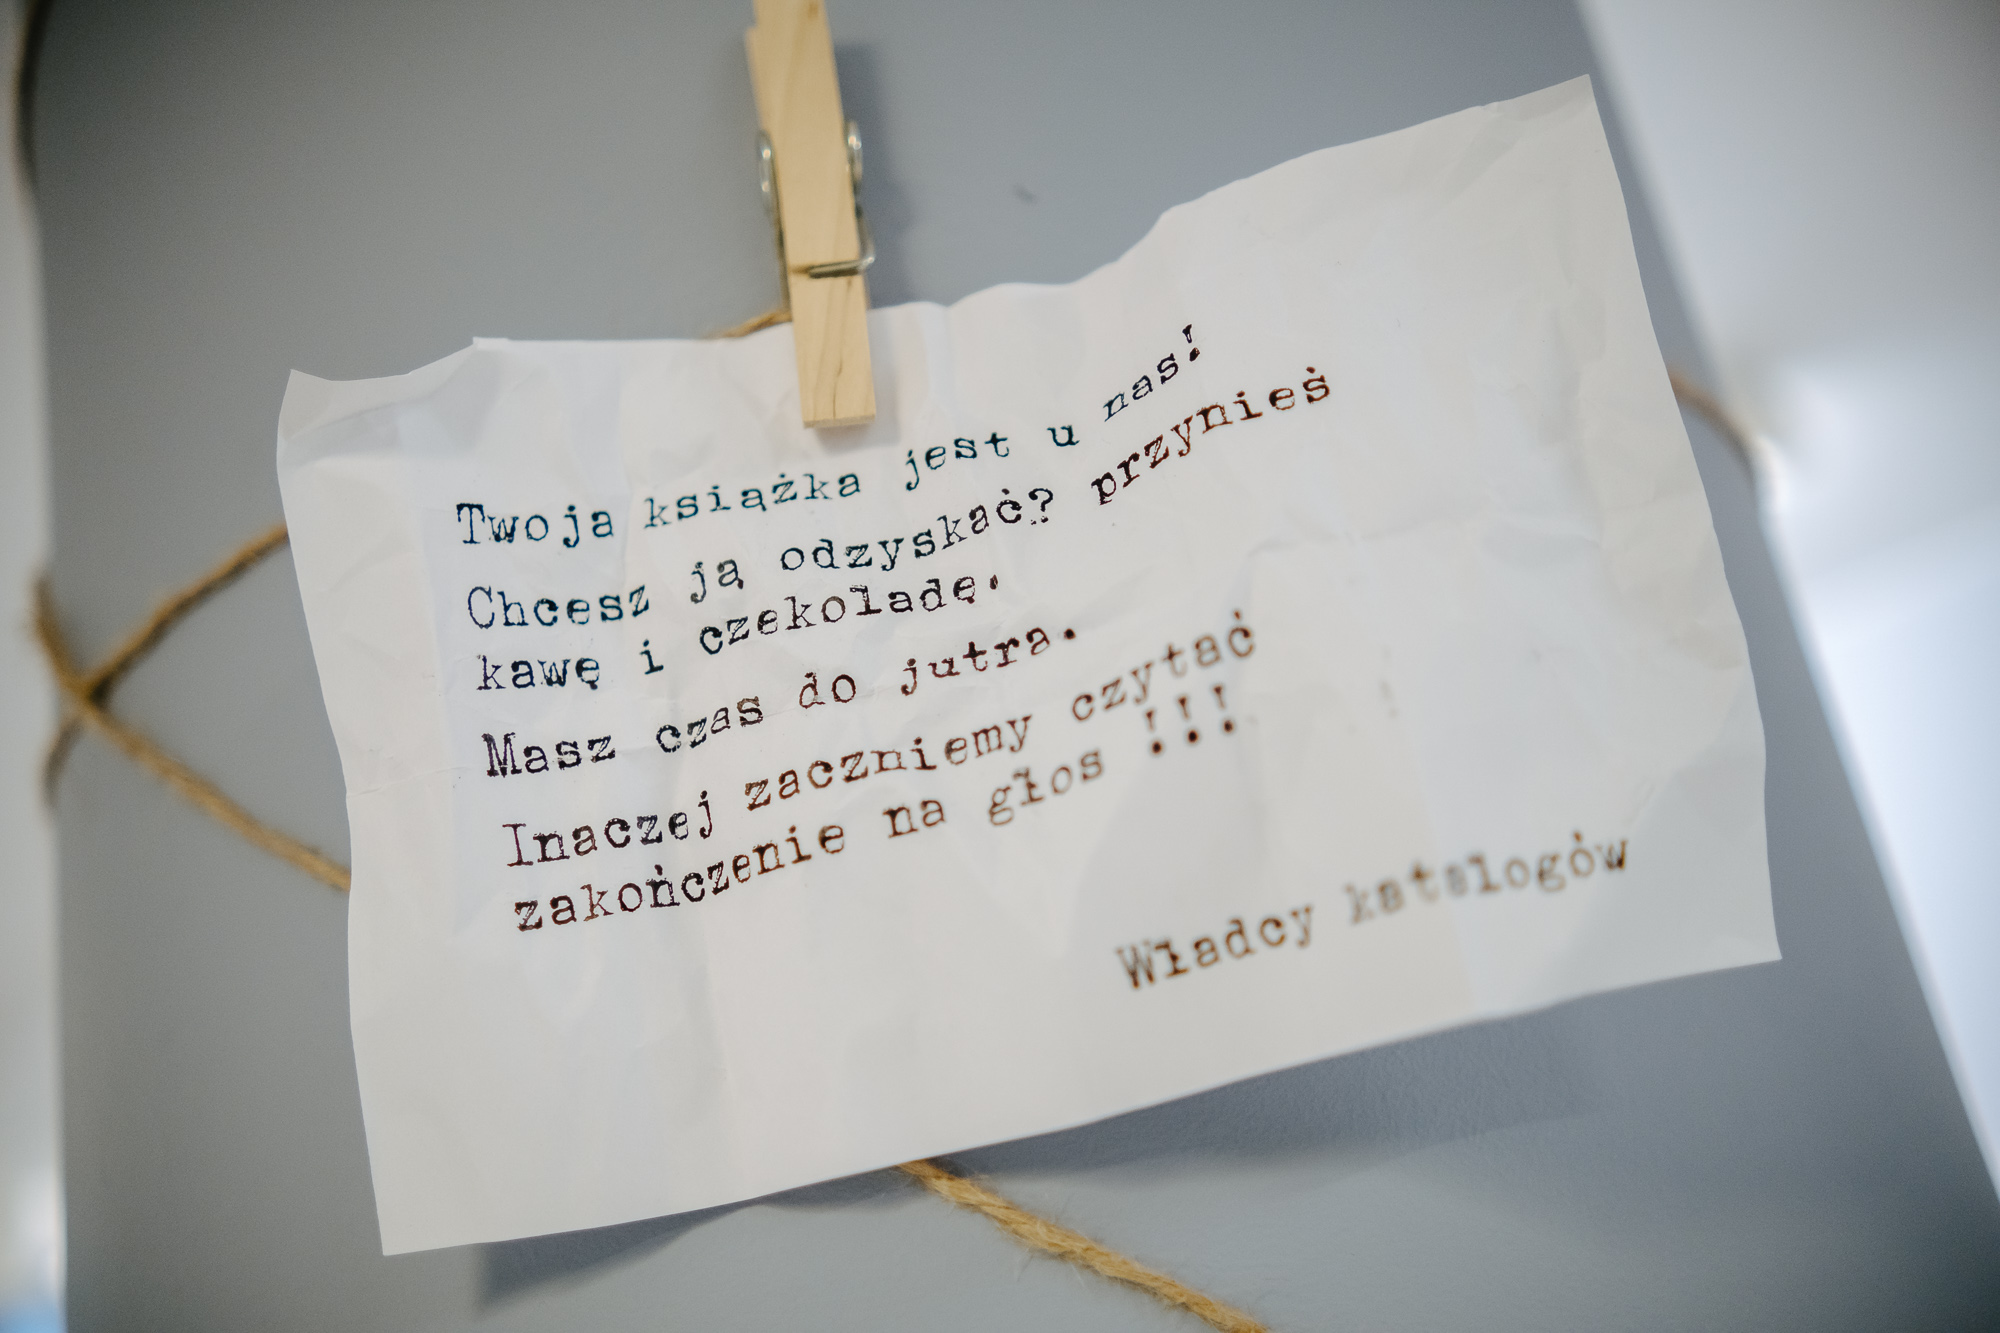 Twoja książka jest u nas!
Chcesz ją odzyskać? przynieś
kawę i czekoladę.
Masz czas do jutra.
Inaczej zaczniemy czytać
zakończenie na głos !!!
Władcy katalogów